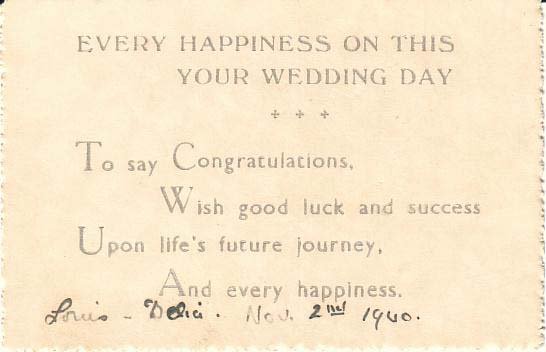 EVERY HAPPINESS ON THIS
YOUR WEDDING DAY
To say Congratulations,
Wish good luck and success
Upon life's future journey,
And every happiness.
Louis - Delia. Nov. 2nd 1940.